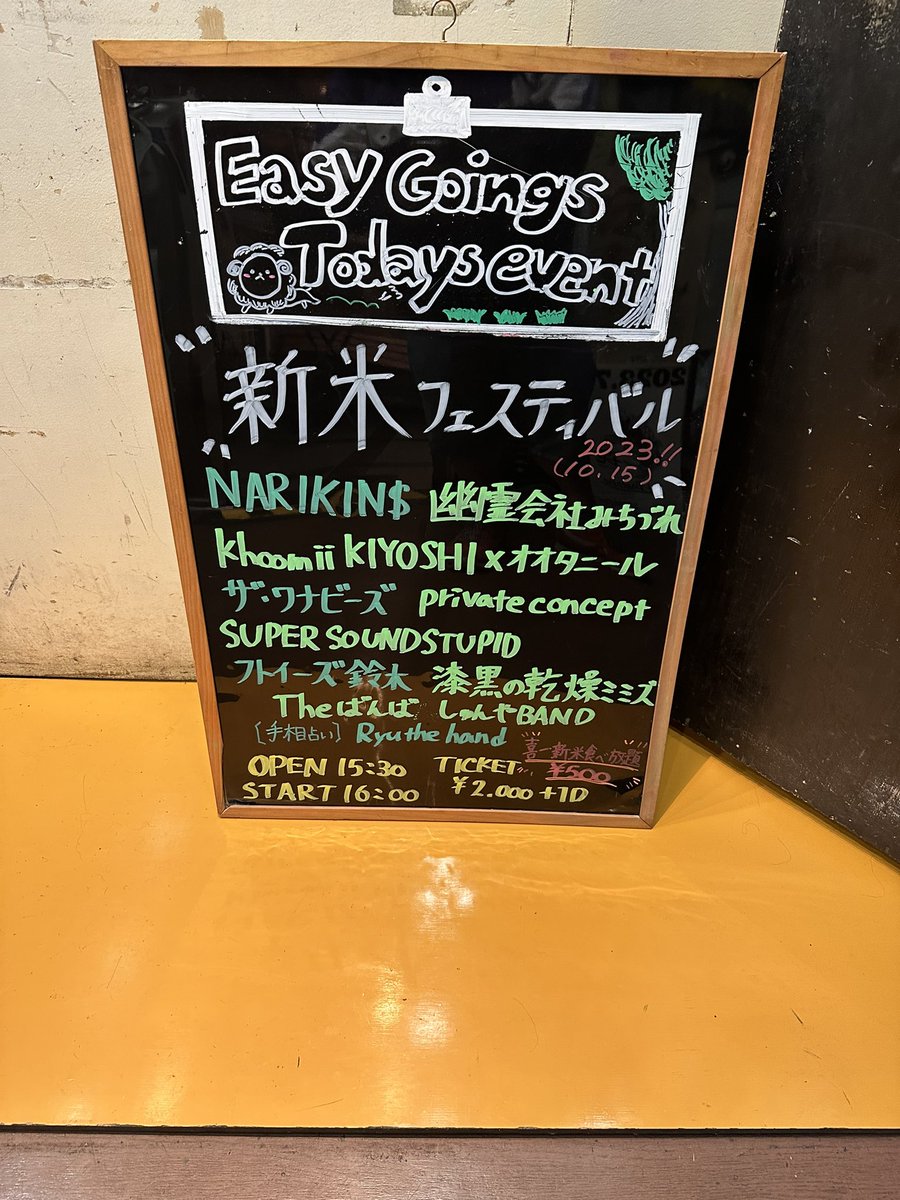 Easy Goings
Todays event
新米フェスティバル
2023.!!
(10.15)
NARIKIN$ 幽霊会社みちづれ
khoomii KIYOSHI x オオタニール
ザ・ワナビーズ private concept
SUPER SOUNDSTUPID
フトイーズ鈴木 漆黒の乾燥ミミズ
Theばんば しゅんやBAND
[手相占い] Ryu the hand
喜一新米食べ放題
¥500
OPEN 15:30 TICKET
START 16:00 ¥2.000+1D